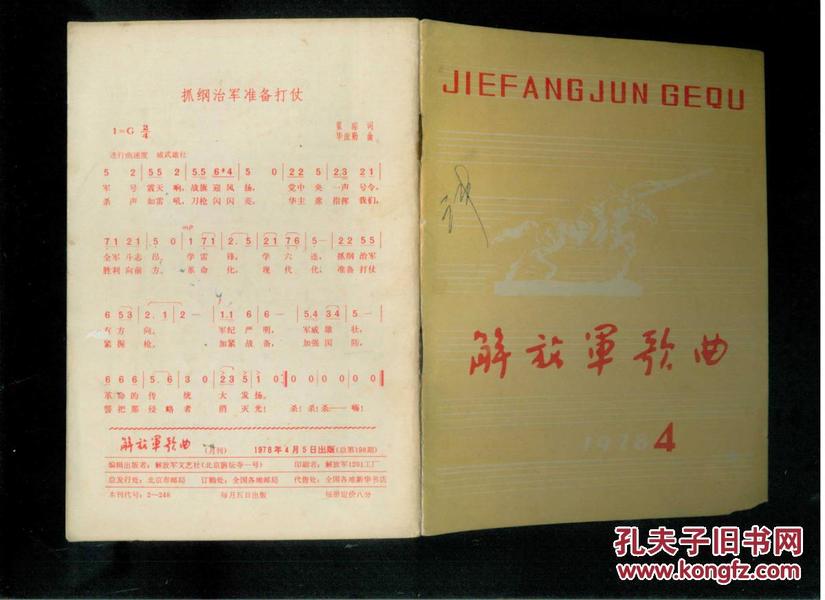 抓纲治军准备打仗
1=G 2/4
词
曲
进行曲速度 威武雄壮
5 2 | 55 2 | 5.5 6#4 | 5 0 | 22 5 | 2.3 21 |
军 号 震天 响, 战旗 迎风 扬, 党中 央 一声 号令,
杀 声 如雷 吼, 刀枪 闪闪 亮, 华主 席 指挥 我们,
mp
71 21 | 5 0 | 1 71 | 2. 5 | 21 76 | 5 — | 22 55
全军 斗志 昂, 学 雷 锋, 学 六 连, 抓纲 治军
胜利 向前 方。 革 命 化, 现 代 化, 准备 打仗
6 53 | 2. 1 | 2 — | 1.1 6 | 6 — | 5.4 34 | 5 —
有 方 向。 军纪 严 明, 军威 雄 壮,
紧 握 枪。 加紧 战 备, 加强 国 防,
66 6 | 5. 6 | 3 0 | 23 5 | 1 0 | 0 0 | 0 0 | 0 0
革命 的 传 统 大 发 扬。
誓把 那 侵 略 者 消 灭 光! 杀! 杀! 杀—— 嗨!
解放军歌曲 (月刊) 1978年4月5日出版 (总第198期)
编辑出版者: 解放军文艺社(北京旃坛寺一号) 印刷者: 解放军1201工厂
总发行处: 北京市邮局 订购处: 全国各地邮局 代售处: 全国各地新华书店
本刊代号: 2—248 每月五日出版 每册定价八分
JIEFANGJUN GEQU
解放军歌曲
1978 4
孔夫子旧书网
www.kongfz.com